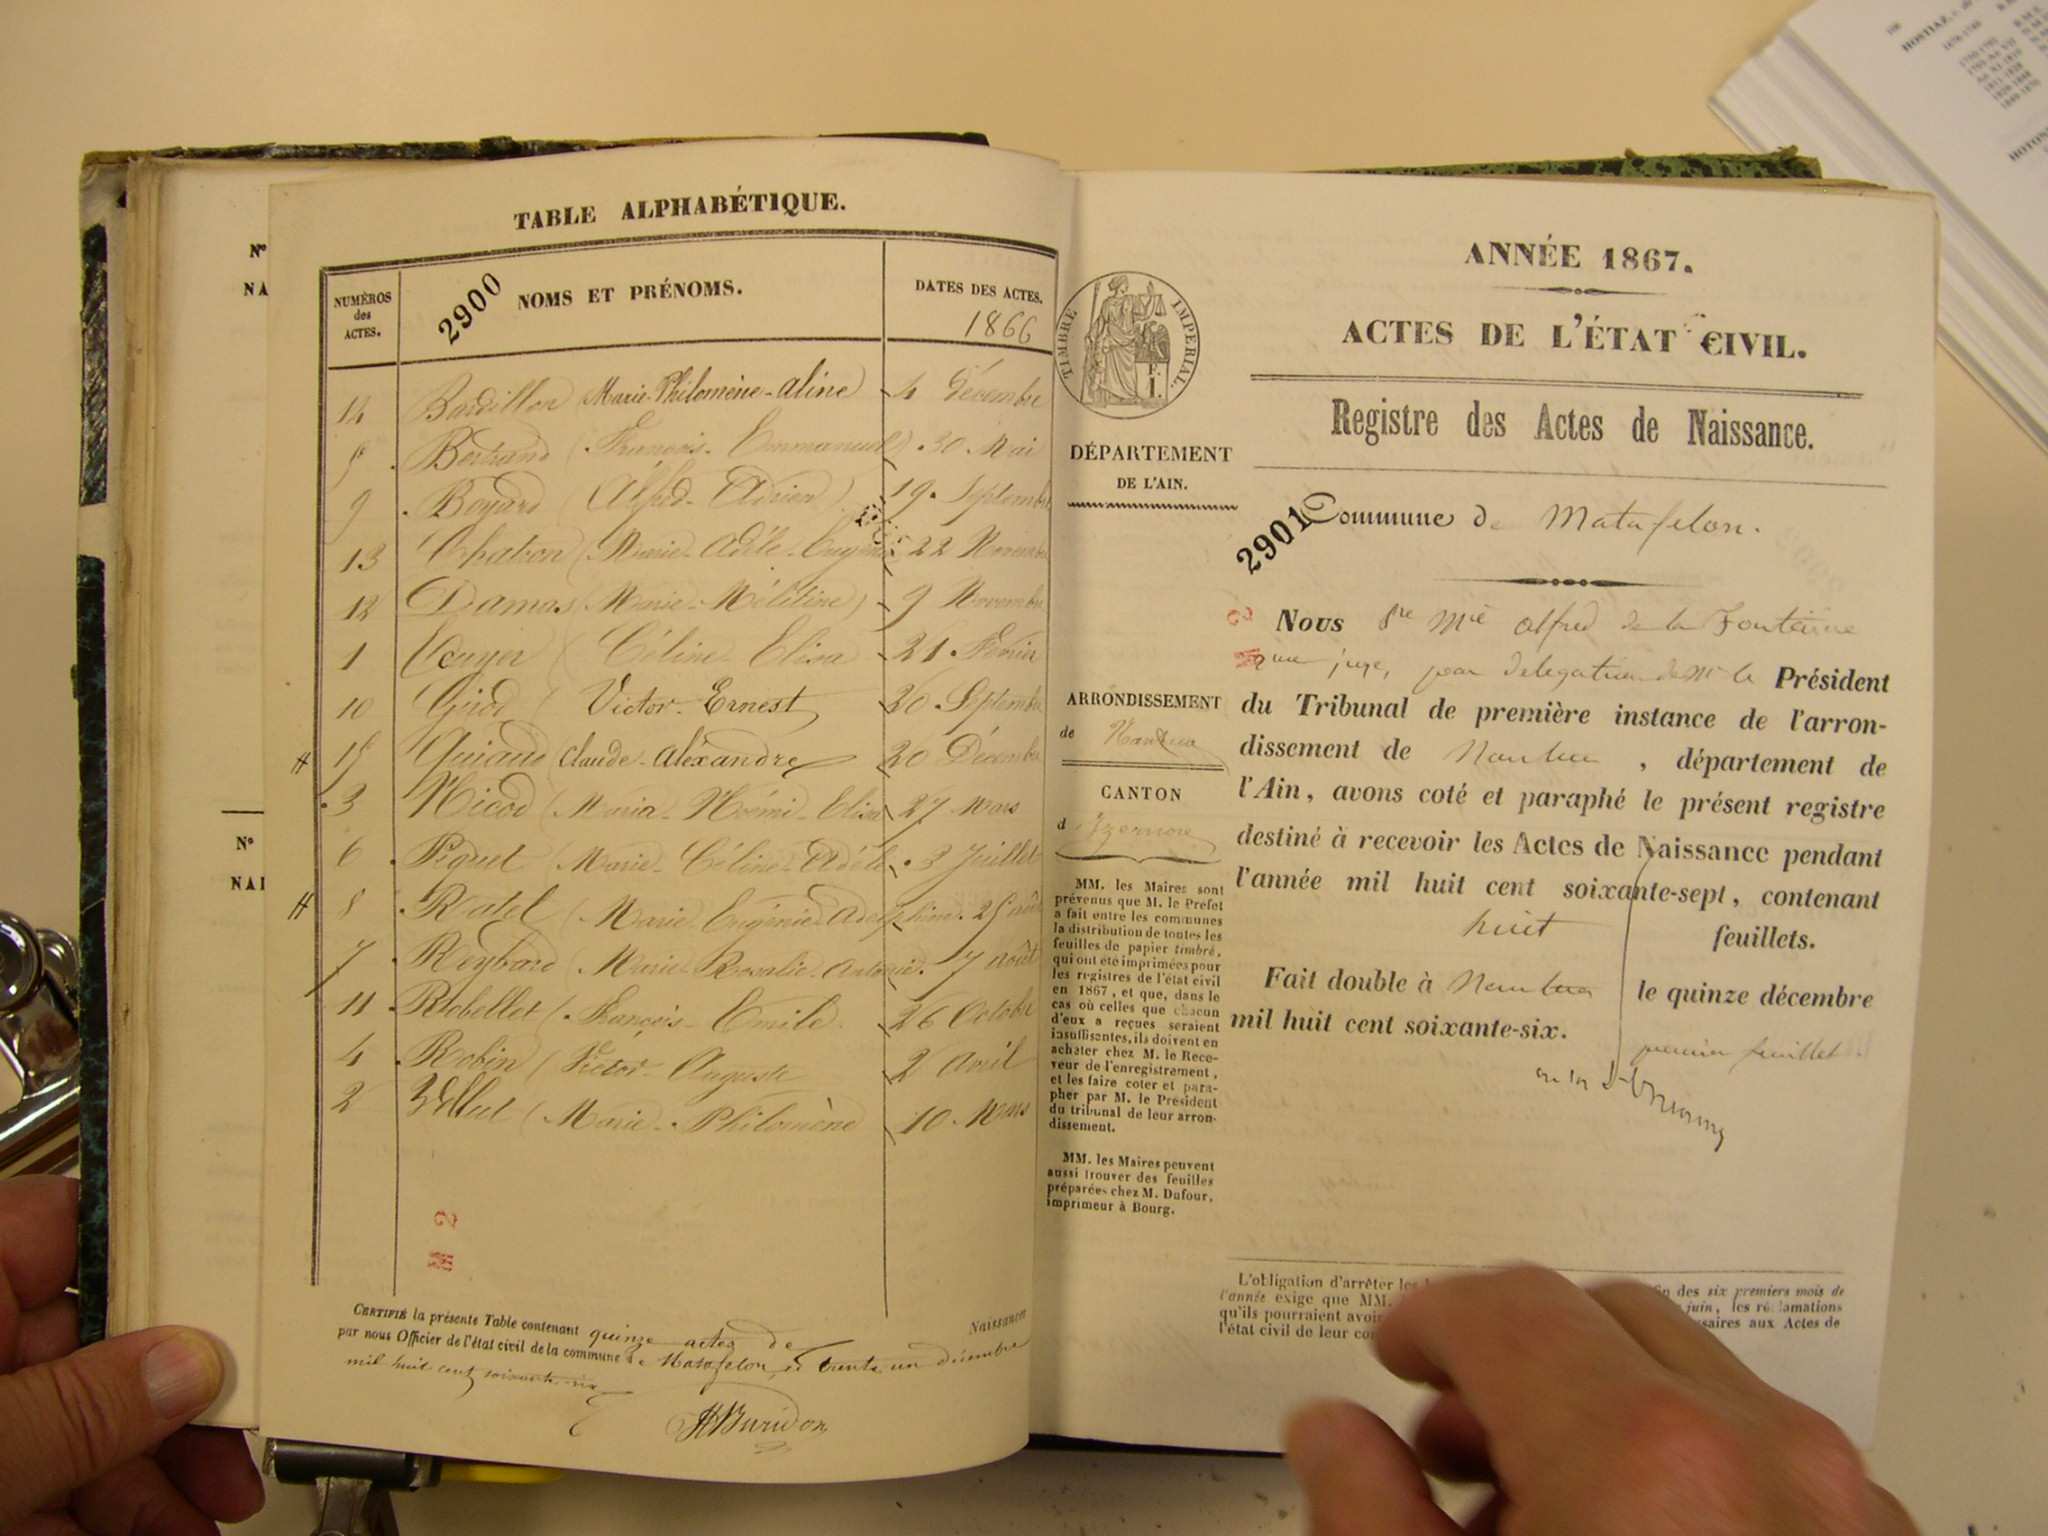 N°
NA
N°
NAI
TABLE ALPHABÉTIQUE.
NUMÉROS
des
ACTES.
2900
NOMS ET PRÉNOMS.
DATES DES ACTES.
1866
14 Bardillon (Marie-Philomène-aline 4 Décembre
5 Bertrand (François-Emmanuel) 30 Mai
9 Boyard (Alfred-Adrien) 19 Septembre
13 Chabon (Marie-Adèle-Eugénie 22 Novembre
12 Damas (Marie-Mélitine) 9 Novembre
1 Ecuyer (Céline-Elisa 21 Février
10 Girod (Victor-Ernest 20 Septembre
15 Claude-aléxandre 20 Décembre
3 Nicod (Maria-Noémi-Elisa 27 Mars
6 Piquet (Marie-Céline-Adèle 3 Juillet
8 Ratel (Marie-Eugénie 25 août
7 Reybard (Marie-Rosalie-Antonie 7 août
11 Robellet (François-Emile 26 Octobre
4 Robin (Victor-Auguste 2 avril
2 (Marie-Philomène 10 Mars
CERTIFIÉ la présente Table contenant quinze actes de Naissances
par nous Officier de l'état civil de la commune de Matafelon, le trente un décembre
mil huit cent soixante-six
Buridon
TIMBRE IMPÉRIAL.
DÉPARTEMENT
DE L'AIN.
ARRONDISSEMENT
de Nantua
CANTON
d'Izernore
MM. les Maires sont
prévenus que M. le Préfet
a fait entre les communes
la distribution de toutes les
feuilles de papier timbré,
qui ont été imprimées pour
les registres de l'état civil
en 1867, et que, dans le
cas où celles que chacun
d'eux a reçues seraient
insuffisantes, ils doivent en
acheter chez M. le Rece-
veur de l'enregistrement,
et les faire coter et para-
pher par M. le Président
du tribunal de leur arron-
dissement.
MM. les Maires peuvent
aussi trouver des feuilles
préparées chez M. Dufour,
imprimeur à Bourg.
ANNÉE 1867.
ACTES DE L'ÉTAT CIVIL.
Registre des Actes de Naissance.
2901
Commune de Matafelon.
Nous alfred de la Fonteine
juge, par délégation de Mr le Président
du Tribunal de première instance de l'arron-
dissement de Nantua, département de
l'Ain, avons coté et paraphé le présent registre
destiné à recevoir les Actes de Naissance pendant
l'année mil huit cent soixante-sept, contenant
huit feuillets.
Fait double à Nantua le quinze décembre
mil huit cent soixante-six.
premier feuillet.
L'obligation d'arrêter les fin des six premiers mois de
l'année exige que MM. juin, les réclamations
qu'ils pourraient avoir ssaires aux Actes de
l'état civil de leur com
HOSTIAZ